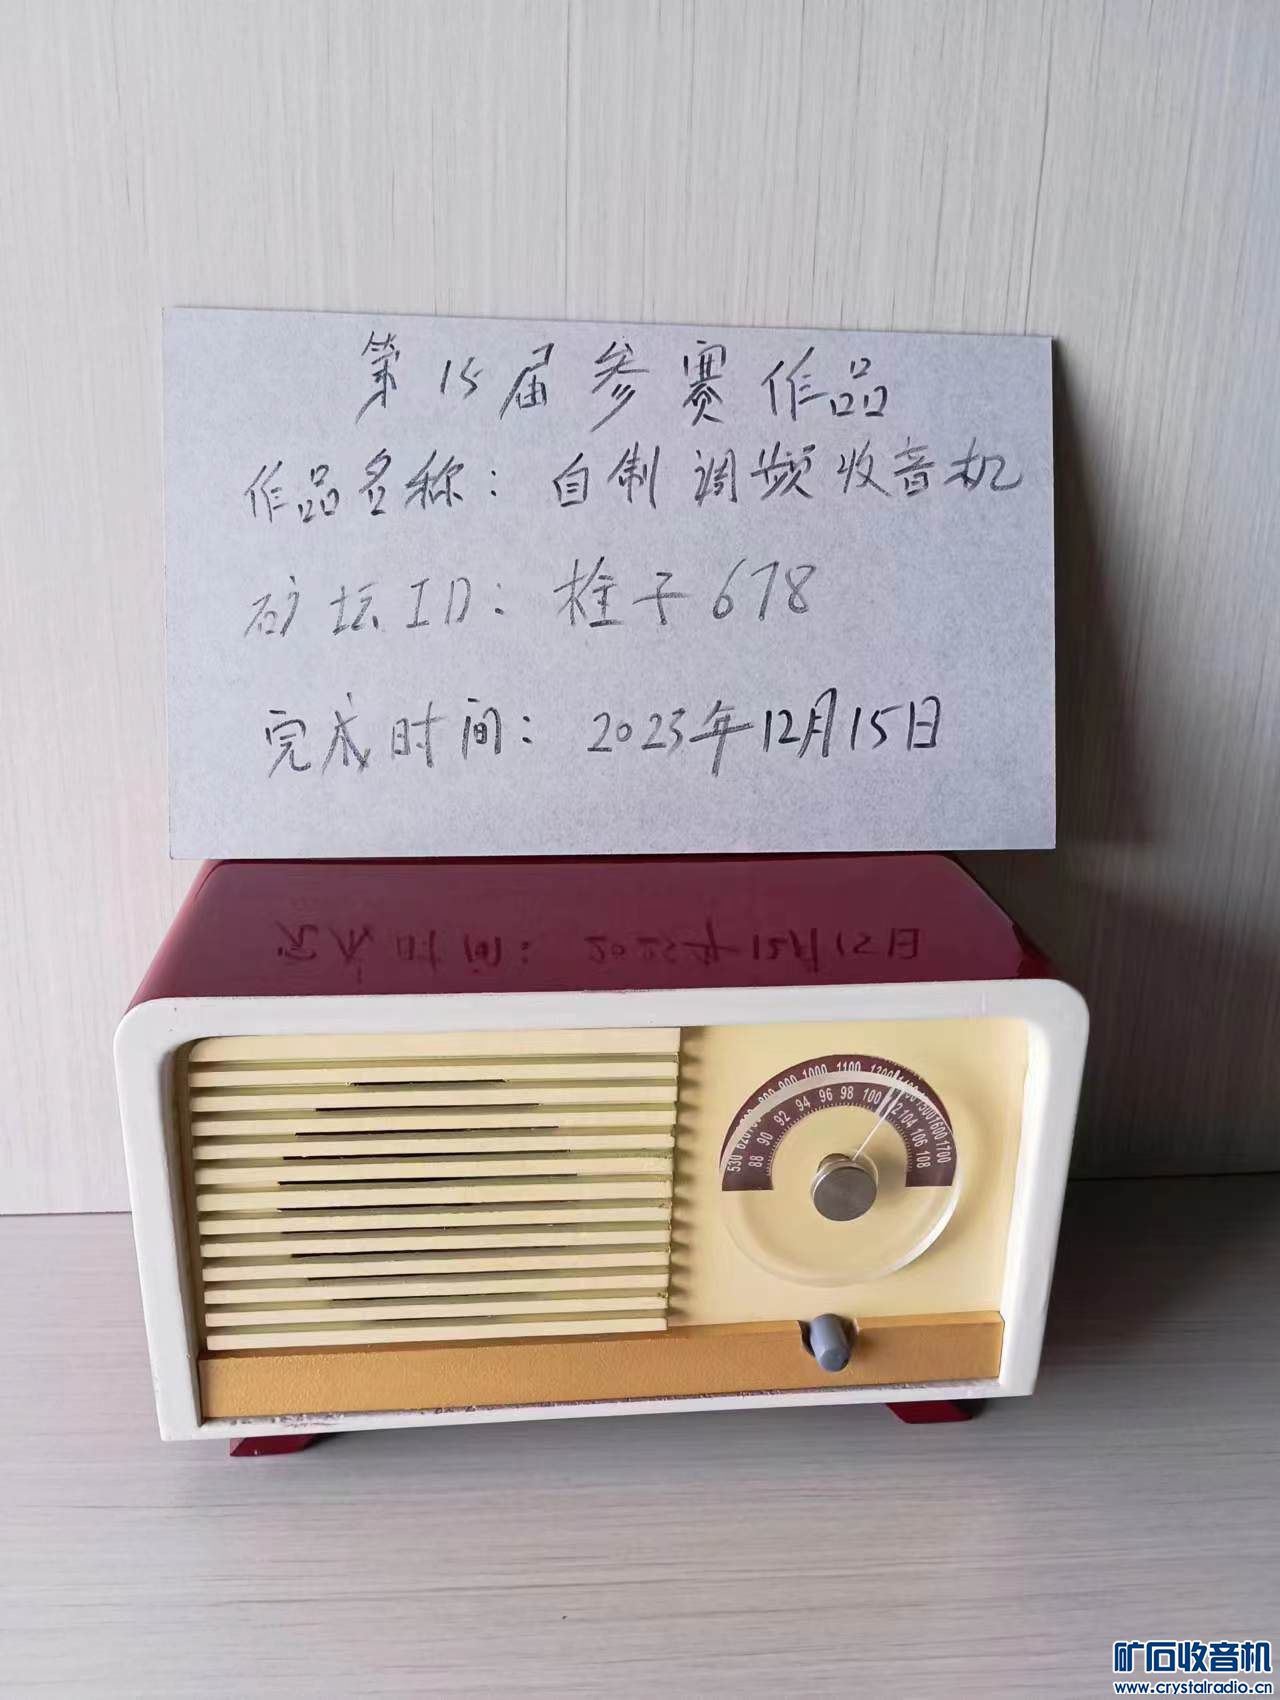 第15届参赛作品
作品名称：自制调频收音机
矿坛ID：栓子678
完成时间：2023年12月15日
1000 1100
530
88 90 92 94 96 98 100 104 106 108
1600 1700
矿石收音机
www.crystalradio.cn